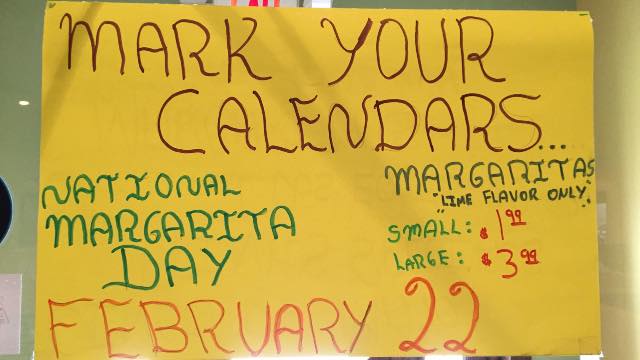 MARK YOUR
CALENDARS...
NATIONAL
MARGARITA
DAY
MARGARITAS
"LIME FLAVOR ONLY"
SMALL: $1.99
LARGE: $3.99
FEBRUARY 22